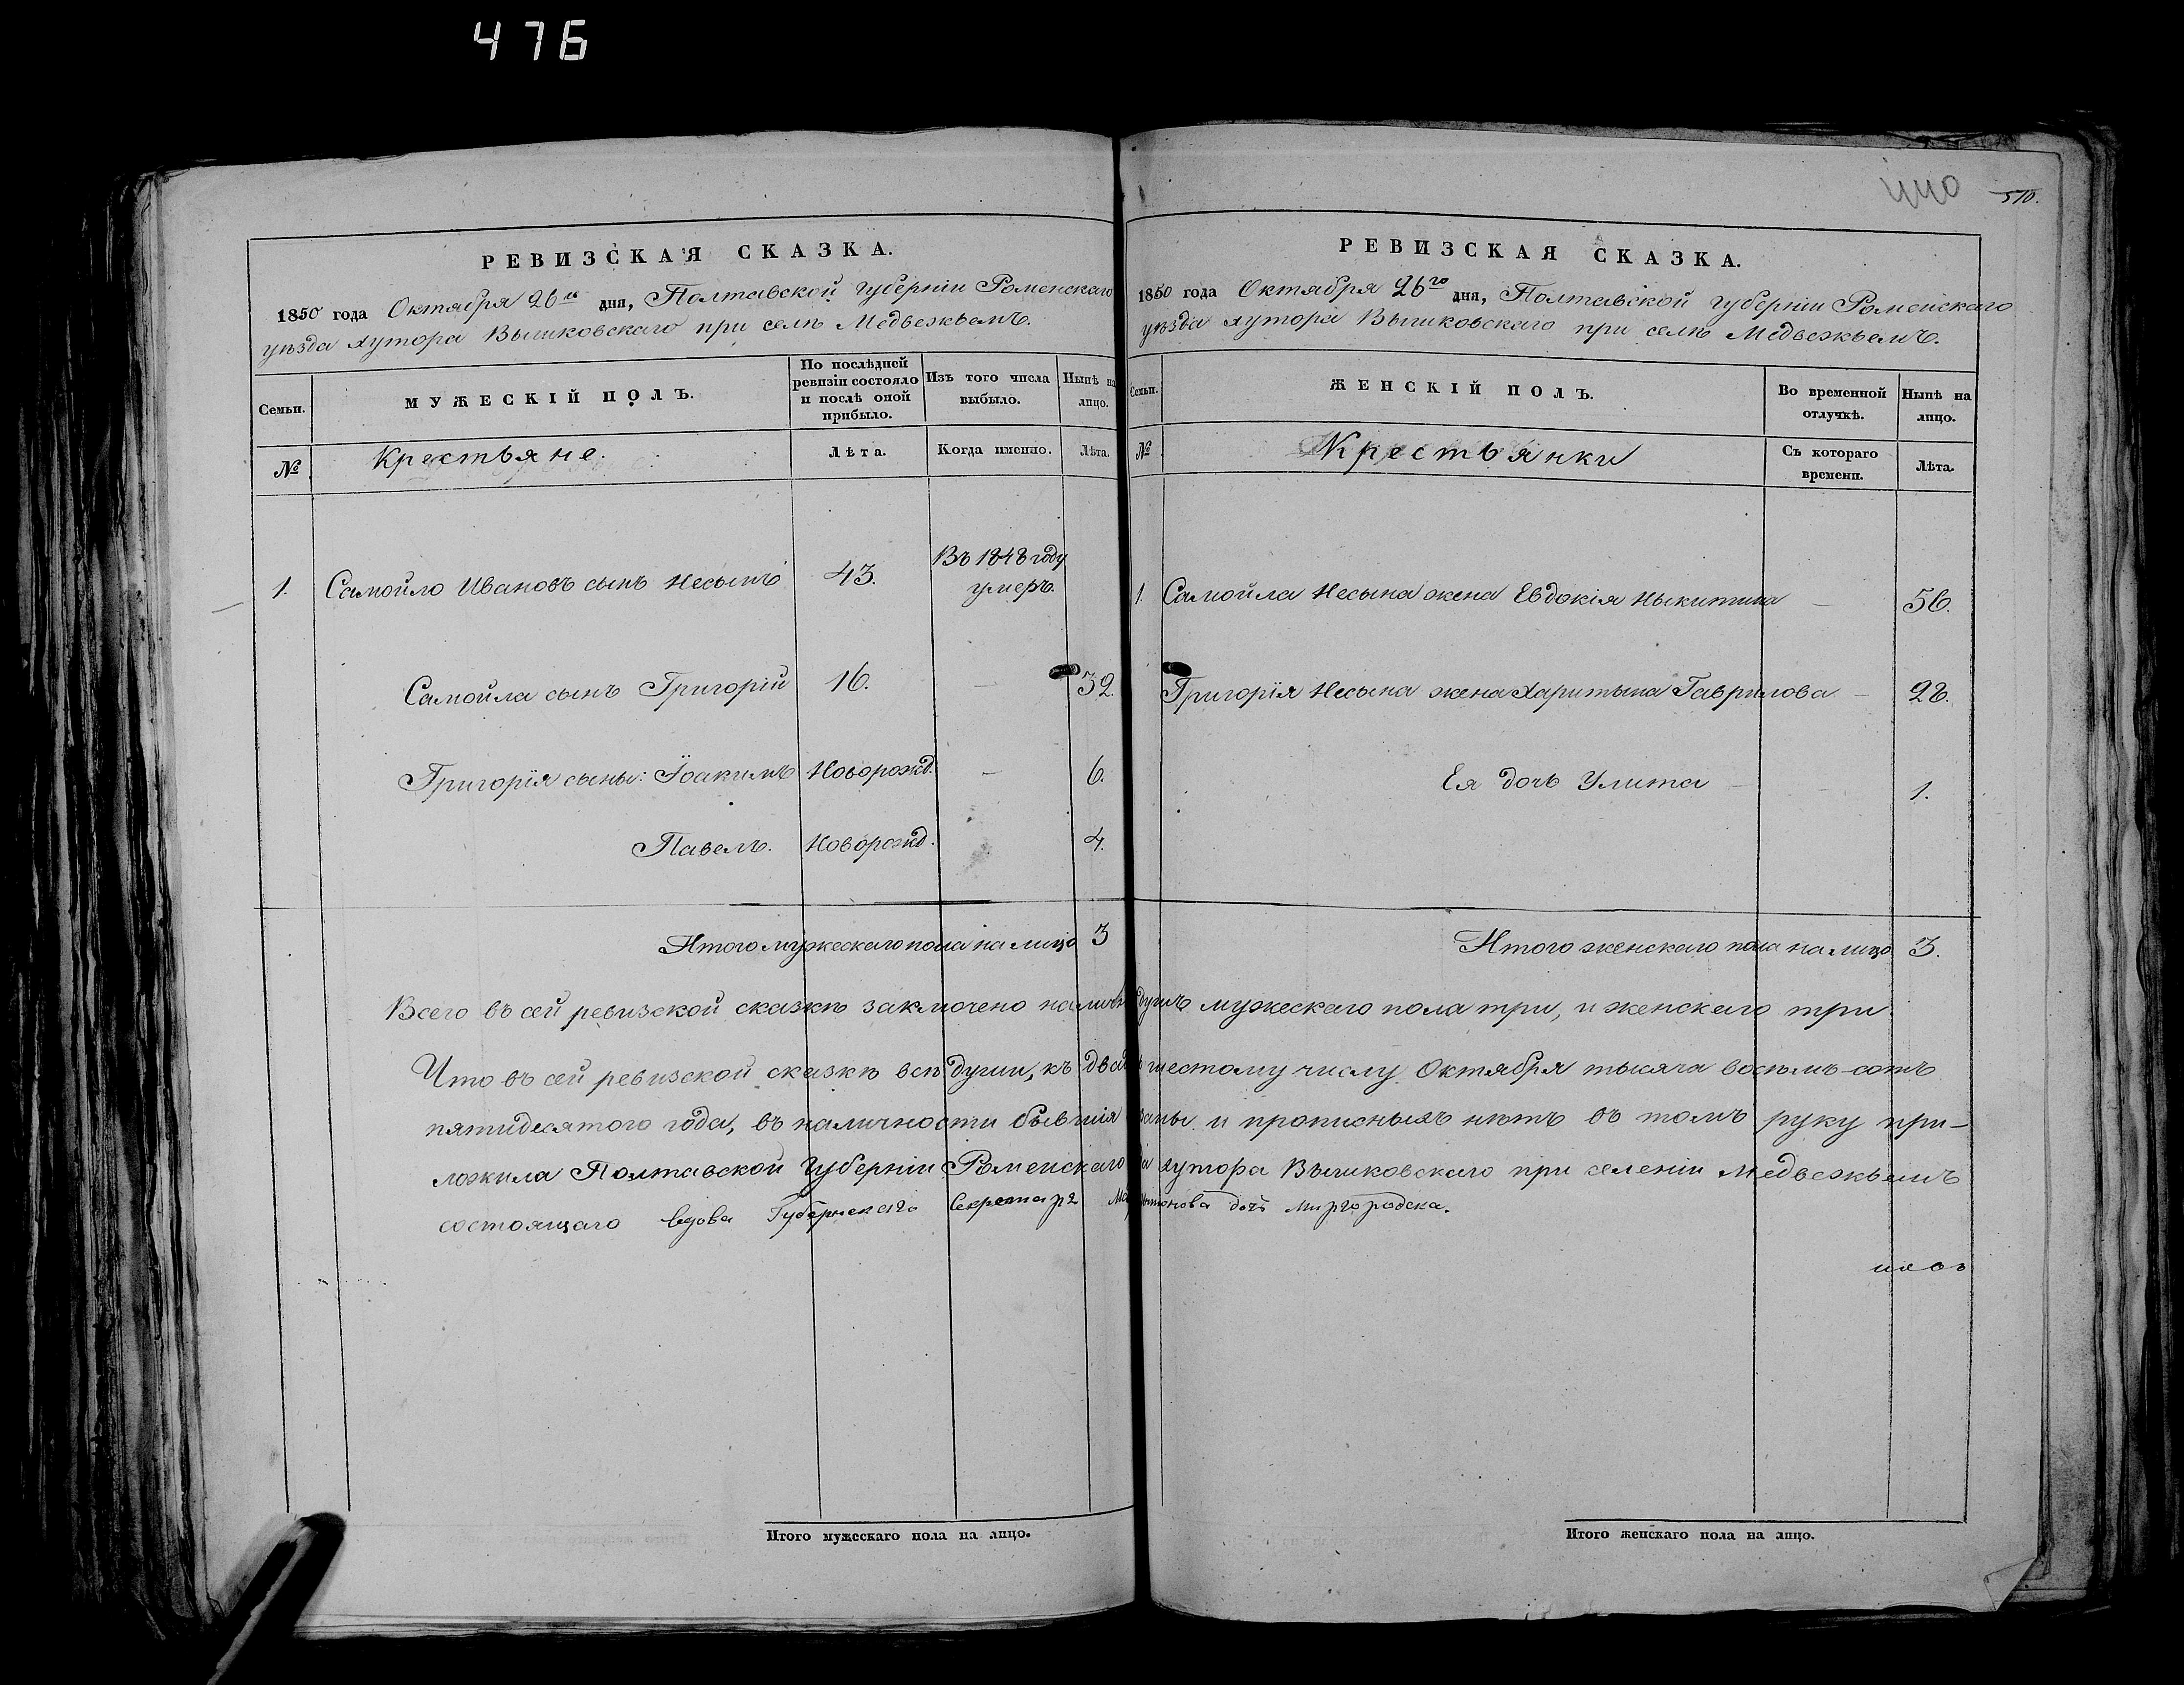 476
510.
РЕВИЗСКАЯ СКАЗКА.
1850 года Октября 26го дня, Полтавской губерніи Роменскаго
уѣзда хутора Вышковскаго при селѣ Медвежьемъ.
Семьи.
МУЖЕСКІЙ ПОЛЪ.
По послѣдней ревизіи состояло и послѣ оной прибыло.
Изъ того числа выбыло.
Нынѣ на лицо.
№
Крестьяне.
Лѣта.
Когда именно.
Лѣта.
1. Самойло Ивановъ сынъ Несынъ 43. Въ 1848 году умеръ.
Самойла сынъ Григорій 16. — 32.
Григорія сыны: Іоакимъ Новорожд. — 6.
Павелъ. Новорожд. 4.
Итого мужескаго пола на лицо 3
РЕВИЗСКАЯ СКАЗКА.
1850 года Октября 26го дня, Полтавской губерніи Роменскаго
уѣзда хутора Вышковскаго при селѣ Медвежьемъ.
Семьи.
ЖЕНСКІЙ ПОЛЪ.
Во временной отлучкѣ.
Нынѣ на лицо.
№
Крестьянки
Съ котораго времени.
Лѣта.
1. Самойла Несына жена Евдокія Ныкитина — 56.
Григорія Несына жена Харитына Гаврилова — 28.
Ея дочь Улита — — 1.
Итого женскаго пола на лицо 3.
Всего въ сей ревизской сказкѣ заключено налич душъ мужескаго пола три, и женскаго три.
Что въ сей ревизской сказкѣ всѣ души, къ двад шестому числу Октября тысяча восемь-сотъ
пятидесятого года, въ наличности бывшія заны и прописныхъ нѣтъ въ томъ руку при-
ложила Полтавской губерніи Роменскаго хутора Вышковскаго при селеніи Медвежьемъ
состоящаго вдова Губернскаго Секретаря дочь Миргородска.
Итого мужескаго пола на лицо.
Итого женскаго пола на лицо.